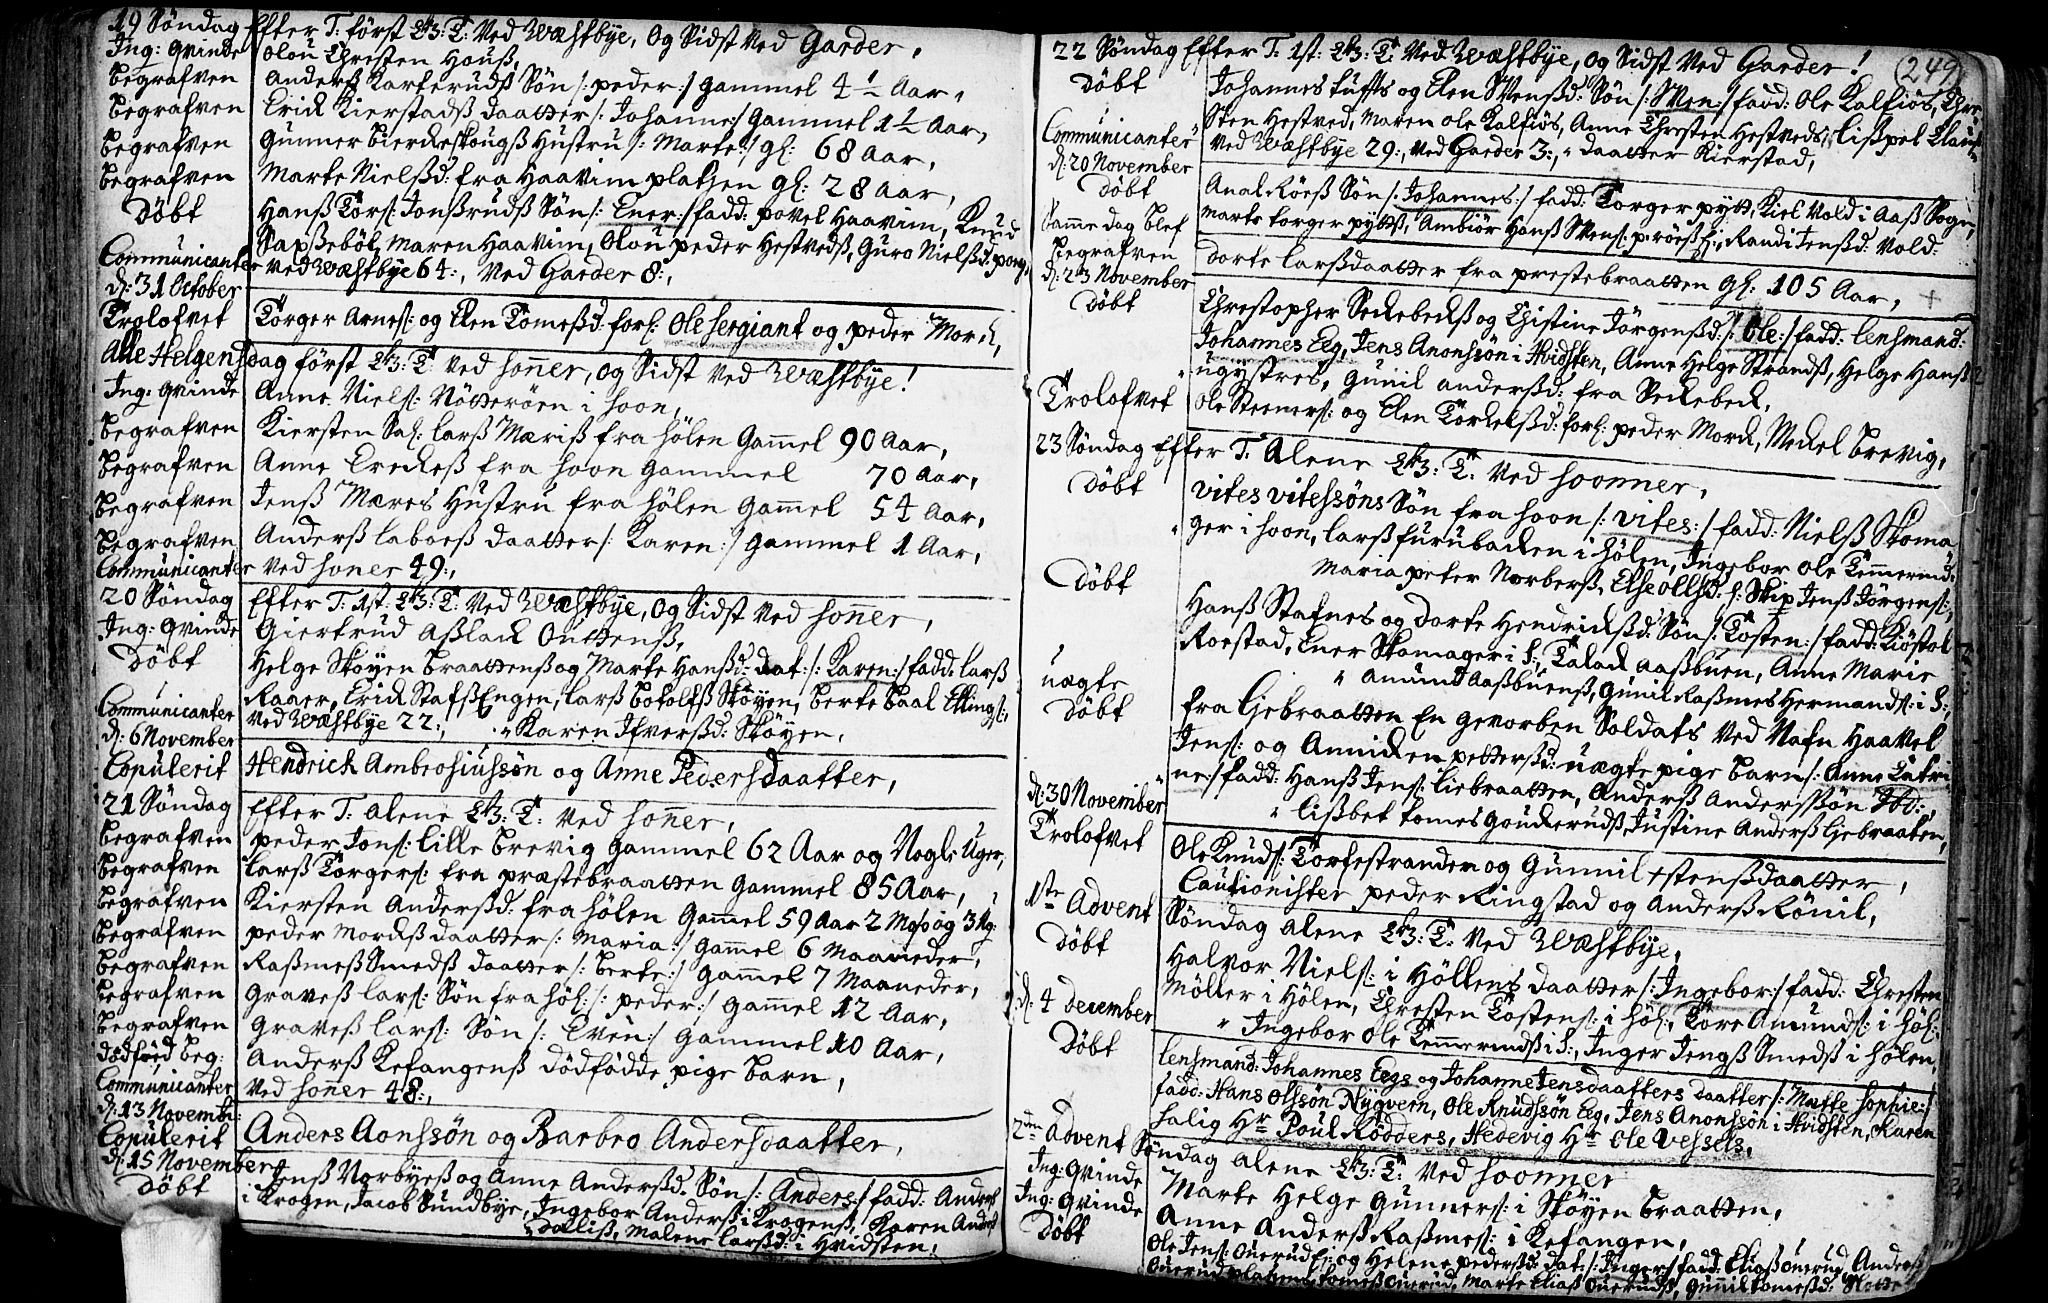 19 Söndag Efter T: först Ek3: T: Ved Wæstbye, Og Sidst Ved Garder,
Ing: qvinde Olou Chresten Houß,
Begrafven Anderß Karteruds Sön /: peder :/ gammel 4½ Aar,
Begrafven Erick Kierstadß daatter /: Johanne :/ gammel 1½ Aar,
Begrafven Gunner Bierckeskougß Hustru /: Marte :/ gl: 68 Aar,
Begrafven Marte Nielßd: fra Haavim platzen gl: 28 Aar,
Döbt Hanß Törs: Jonßruds Sön /: Ener :/ fadd: povel Haavim, Knud
Sapßeböl, Maren Haavim, Olou peder Hestvedß, Guro Nielßd:
Communicanter Ved Wæstbye 64:, Ved Garder 8:,
d: 31 October
Trolofvet Törger Arnes: og Elen Tomeßd: forl: Ole Sergiant og peder Morck,
Alle Helgens dag först Ek3: T: Ved Honner, og Sidst Ved Wæstbye!
Ing: qvinde Anne Niels: Nötteröen i Hoon,
Begrafven Kiersten Sal: Larß Mæriß fra Hölen Gammel 90 Aar,
Begrafven Anne Ereckeß fra Hoon Gammel 70 Aar,
Begrafven Jenß Mæres Hustru fra Hölen Gammel 54 Aar,
Begrafven Anderß Laboeß daatter /: Karen :/ Gammel 1 Aar,
Communicanter Ved Honer 49:,
20 Söndag Efter T: 1st: Ek3: T: Ved Wæstbye, Og Sidst Ved Honner,
Ing: qvinde Giertrud Aßlack Outtenß,
Döbt Helge Sköyen Braattenß og Marte Hanßd: dat: /: Karen :/ fadd: Larß
Raaer, Erick StafsEngen, Larß Botolfß Sköyen, Berte Baal Ellings:,
Communicanter Ved Wæstbye 22:, Karen Ifverßd: Sköyen,
d: 6 November
Copulerit Hendrich Ambrosiussön og Anne Pedersdaatter,
21 Söndag Efter T: Alene Ek3: T: Ved Honner,
Begrafven peder Jons: Lille Brevig Gammel 62 Aar og Nogle Uger,
Begrafven Larß Törgers: fra præstebraatten Gammel 85 Aar,
Begrafven Kiersten Anderßd: fra Hölen Gammel 59 Aar 2 og 3
Begrafven peder Mordß daatter /: Maria :/ Gammel 6 Maaneder,
Begrafven Raßmeß Smedß daatter /: Berte :/ Gammel 7 Maaneder,
Begrafven Graveß Lars: Sön fra Höl: /: peder :/ Gammel 12 Aar,
Begrafven Graveß Lars: Sön /: Even :/ Gammel 10 Aar,
dödföd Beg: Anderß Kefangenß dödfödde pige Barn,
Communicanter Ved Honner 48:,
d: 13 Novemb:
Copulerit Anders Aonssön og Barbro Andersdaatter,
d: 15 November
Döbt Jenß Norbyeß og Anne Anderßd: Sön /: Anders :/ fadd: Anders
i Krogen, Jacob Sundbye, Ingebor Anderß i Krogenß, Karen Anders
Dalliß, Malene Larßd: i Hvidsten,
249
22 Söndag Efter T: 1st: Ek3: T: Ved Wæstbye, og Sidst Ved Garder!
Döbt Johannes Tufts og Elen Svenßd: Sön /: Sven :/ fadd: Ole Kalfiös, Chre-
sten Hestved, Maren Ole Kalfiös, Anne Chresten Hestveds, Lißpet
Communicanter Ved Wæstbye 29:, Ved Garder 3:, daatter Kierstad,
d: 20 November
Döbt Anal Röeß Sön /: Johannes :/ fadd: Törger pytt, Kiel Vold i Aaß Sogn,
Marte Torger pyttß, Ambiör Hanß Svens: Randi Jenßd: Vold:
Samme dag Blef
Begrafven Dorte Larßdaatter fra prestebraatten gl: 105 Aar,
d: 23 November
Döbt Christopher Seckebeckß og Chistine Jörgenßd: /: Ole :/ fadd: Lensmand:
Johannes Eeg, Jens Anonssön i Hvidsten, Anne Helge Strandß, Helge Hanß
ugystres, Gunil Anderßd: fra Seckebeck,
Trolofvet Ole Steeners: og Elen Törckelßd: forl: peder Morck, Mickel Brevig,
23 Söndag Efter T: Alene Ek3: T: Ved Hoonner,
Döbt Vites Vitessöns Sön fra Hoon /: Vites :/ fadd: Nielß Skoma-
ger i Hoon, Larß Furubacken i Hölen, Ingebor Ole Temmermd:
Maria peter Norberß, Else Ollsd: Skip Jenß Jörgens:,
Döbt Hanß Stafnes og Dorte Hendrickßd: Sön /: Tosten :/ fadd: Kiöstol
Roestad, Ener Skomager i H:, Talack Aasbuen, Anne Marie
Amund Aasbuenß, Gunil Raßmes Hermands: i H:,
uægte
Döbt fra Liebraatten En gevorben Soldats Ved Nafn Haavel
Jens: og Annicken petterßd: uægte pige Barn /: Anne Catri-
ne :/ fadd: Hanß Jens: Liebraatten, Anderß Anderßsön Ibd:,
Lißbet Tomes Gouckerudß, Justine Anderß Liebraaten,
d: 30 November
Trolofvet Ole Knuds: Torkestranden og Gunnil estenßdaatter,
Cautionister peder Ringstad og Anderß Rönil,
1ste Advent Söndag Alene Ek3: T: Ved Wæstbye,
Döbt Halvor Niels: i Höllens daatter /: Ingebor :/ fadd: Chresten
Möller i Hölen, Chresten Tostens: i Höl:, Tore Amunds: i Höl:
Ingebor Ole Temmermdß i H:, Inger Jengß Smedß i Hölen,
d: 4 december
Döbt Lensmand: Johannes Eegs og Johanne Jensdaatters daatter /: Matte Sophie :/
fadd: Hans Olssön Nygvern, Ole Knudssön Eeg, Jens Anonssön i Hvidsten, Karen
Salig Hr Poul Rödders, Hedevig Hr Ole Vessels,
2den Advent Söndag Alene Ek3: T: Ved Hoonner
Ing: qvinde Marte Helge Gunners: i Sköyen Braatten,
Ing: qvinde Anne Anderß Raßmes: i Kefangen,
Döbt Ole Jens: Ouerud Ej: og Helene pederßd: dat: /: Inger :/ fadd: Eliaß Ouerud, Anderß
Ouerud platzen, Tomeß Ouerud, Marte Eliaß Ouerudß, Gunnil Tomeßd: